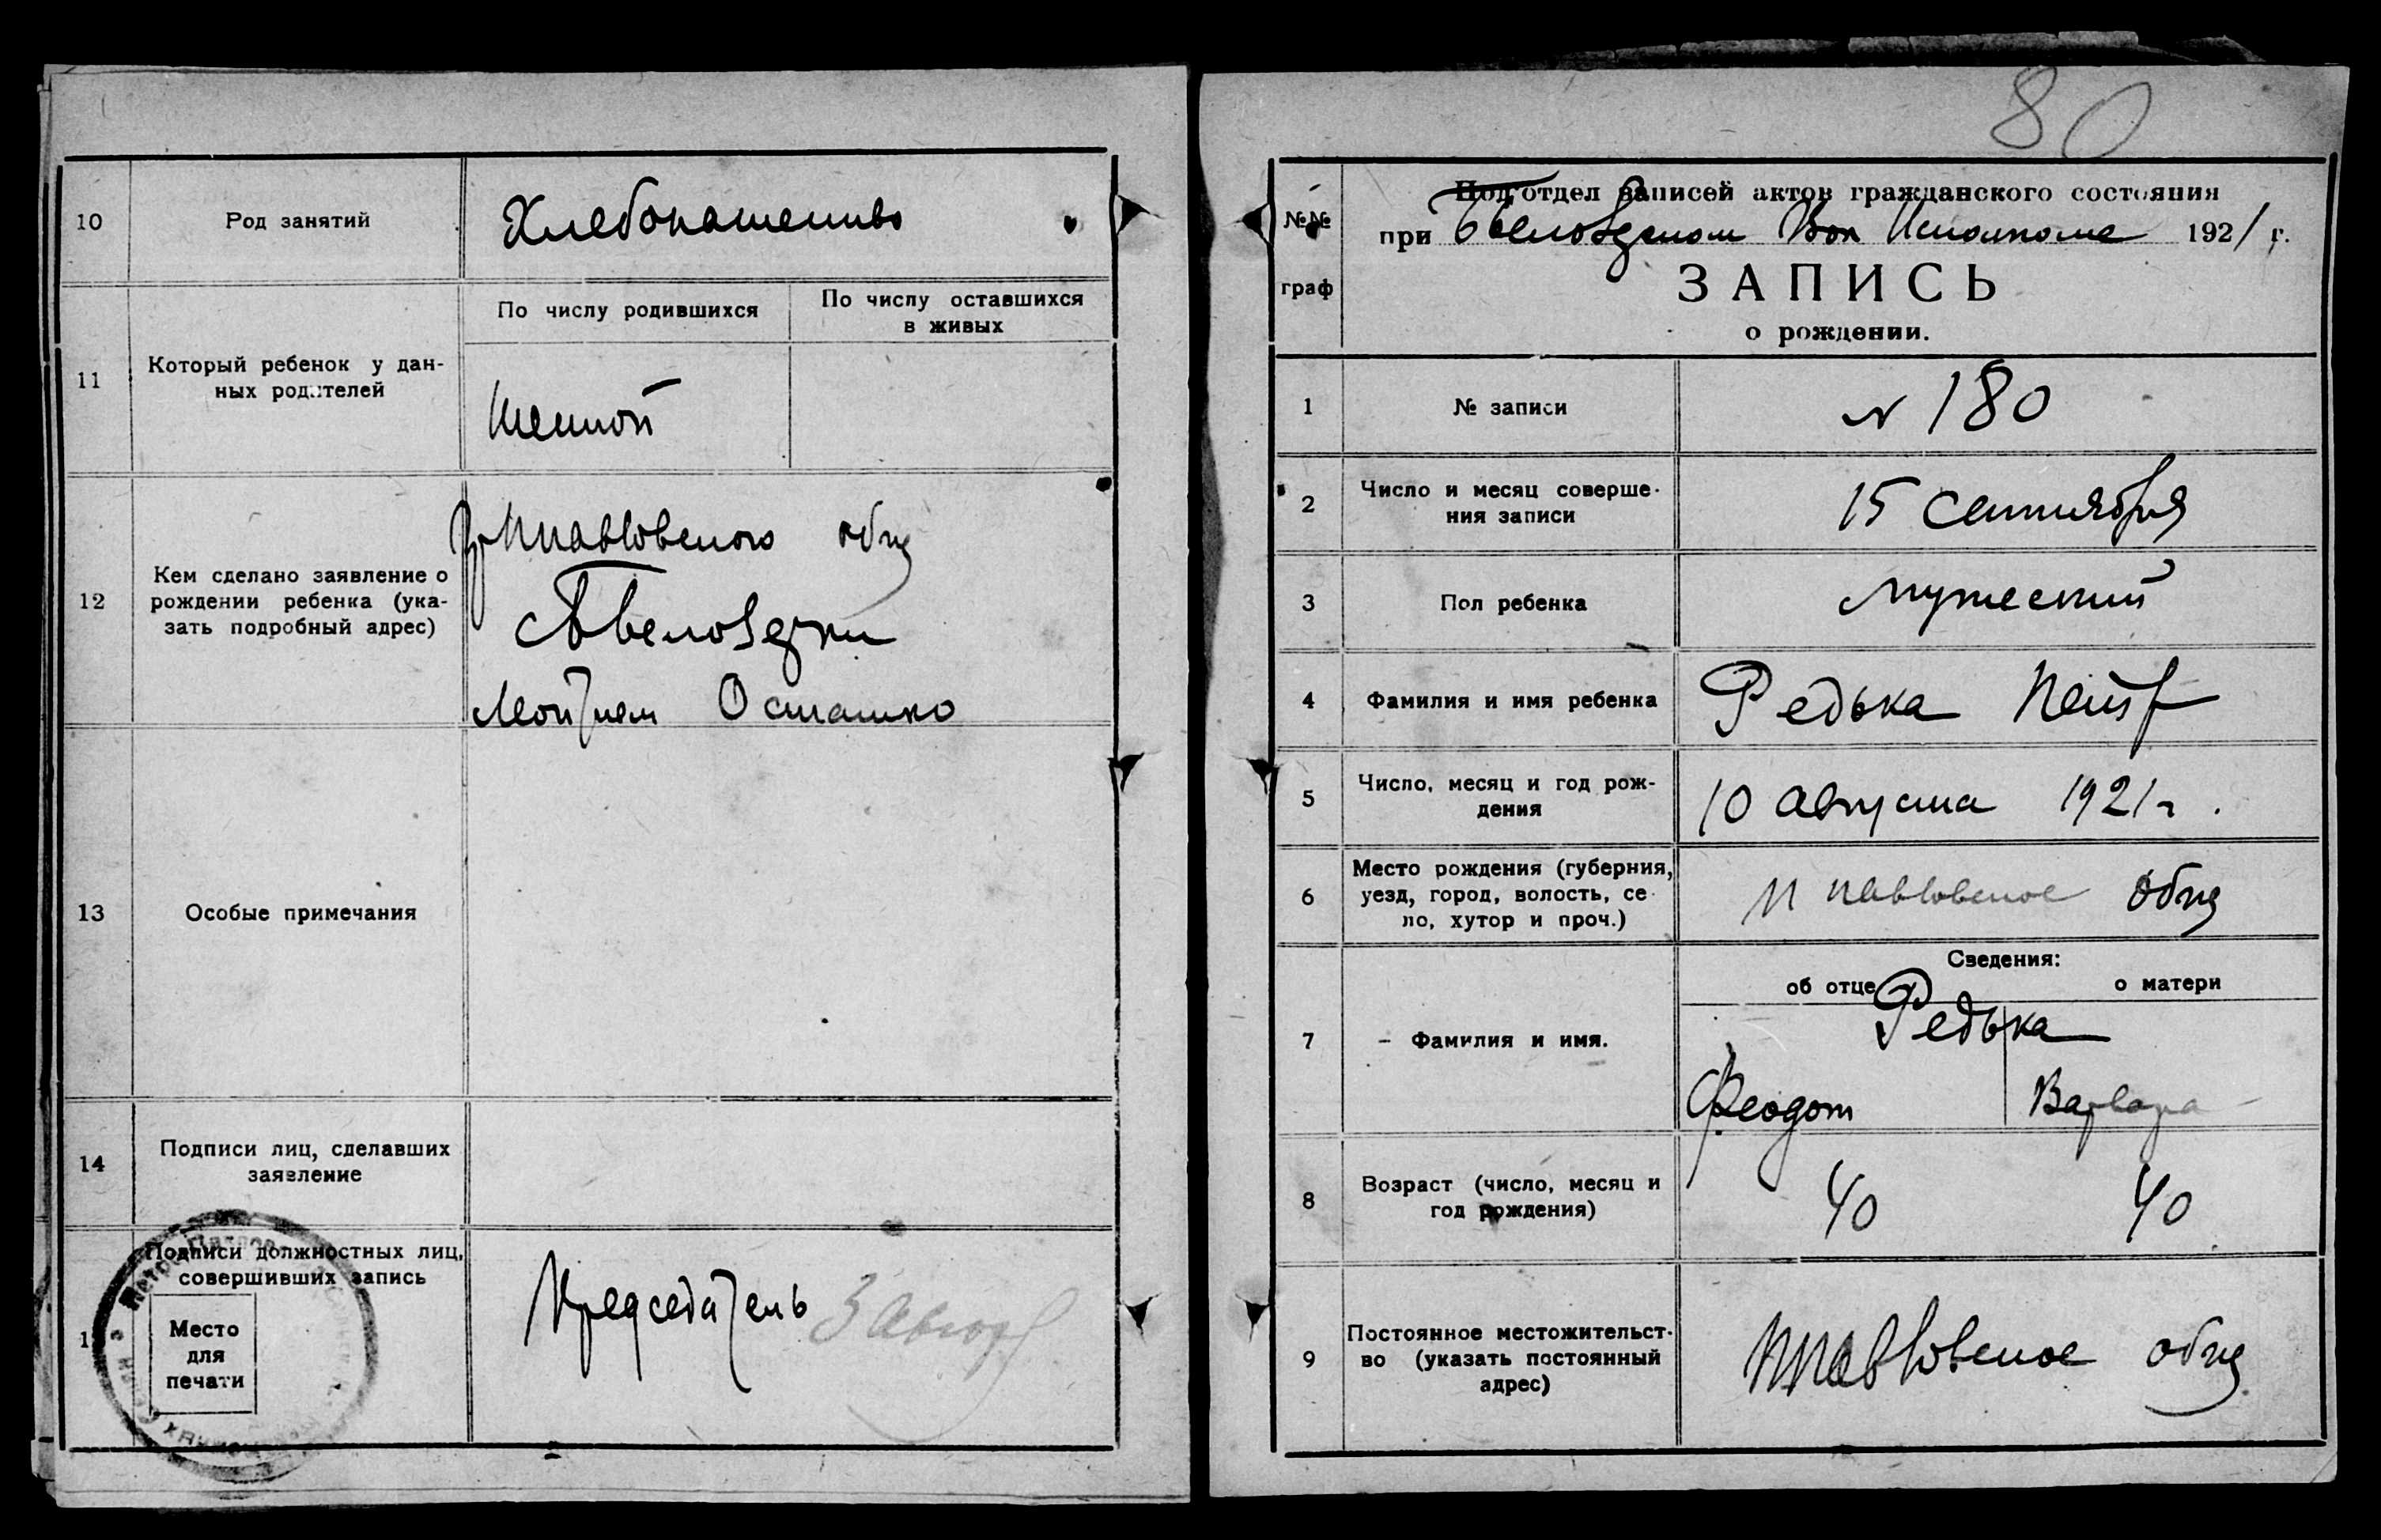 10
Род занятий
Хлебопашенство
11
Который ребенок у дан-
ных родителей
По числу родившихся
По числу оставшихся
в живых
Шестой
12
Кем сделано заявление о
рождении ребенка (ука-
зать подробный адрес)
общ
Осташко
13
Особые примечания
14
Подписи лиц, сделавших
заявление
Подписи должностных лиц,
совершивших запись
Место
для
печати
Председатель
80
№№
граф
Подотдел записей актов гражданского состояния
при Вол Исполкоме 1921 г.
ЗАПИСЬ
о рождении.
1
№ записи
N 180
2
Число и месяц соверше-
ния записи
15 Сентября
3
Пол ребенка
мужеский
4
Фамилия и имя ребенка
Редька Петр
5
Число, месяц и год рож-
дения
10 августа 1921 г.
6
Место рождения (губерния,
уезд, город, волость, се-
ло, хутор и проч.)
общ
Сведения:
об отце
о матери
7
Фамилия и имя.
Редька
Феодот
Варвара
8
Возраст (число, месяц и
год рождения)
40
40
9
Постоянное местожительст-
во (указать постоянный
адрес)
общ